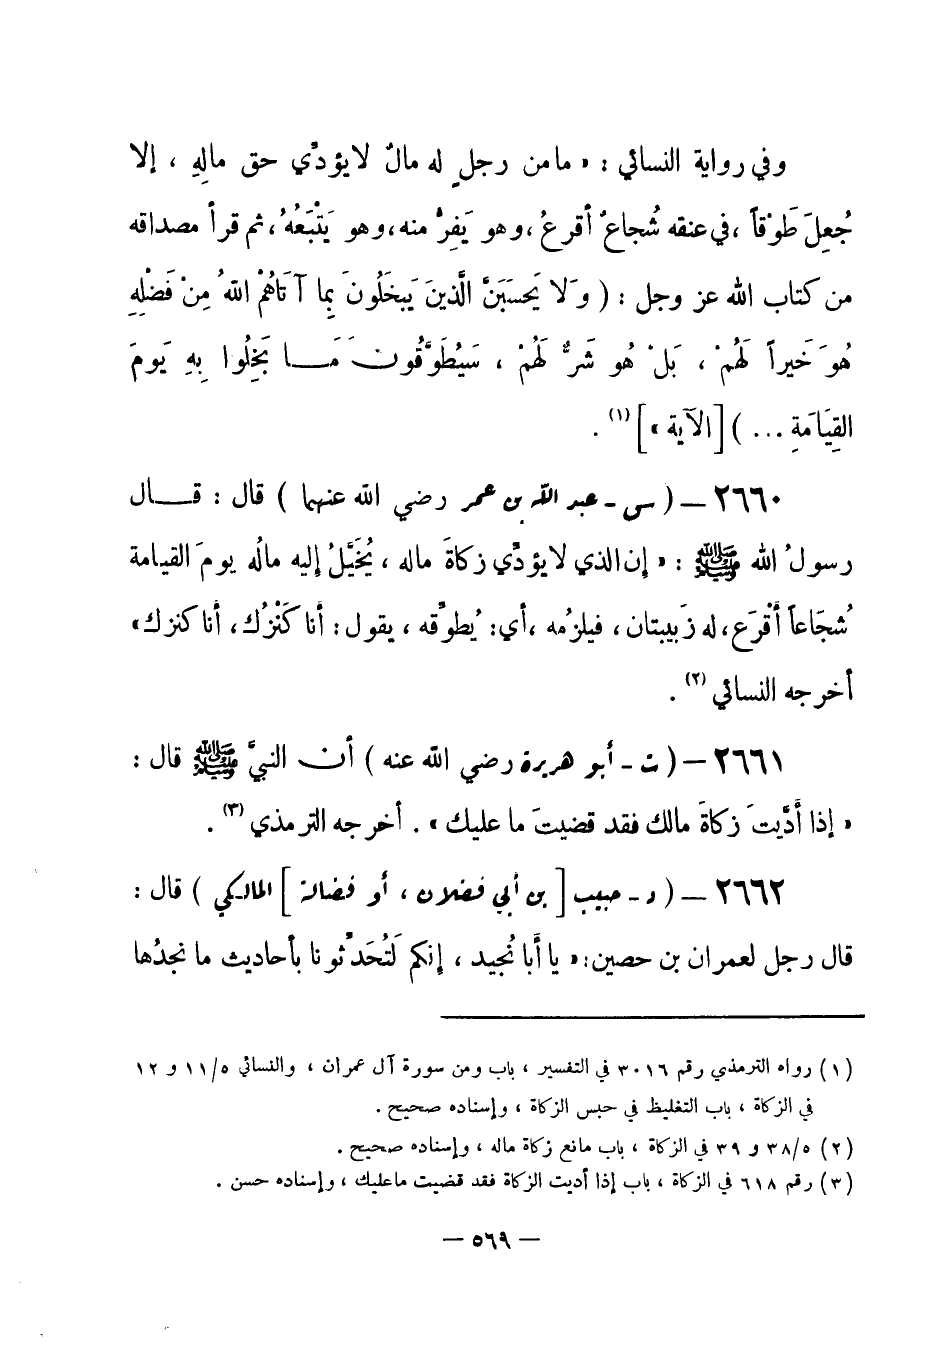 وفي رواية النسائي : « ما من رجلٍ له مالٌ لا يؤدِّي حق مالِهِ ، إلا
جُعِلَ طَوْقاً ، في عنقه شُجاعٌ أقرعُ ، وهو يَفِرُّ منه ، وهو يَتْبَعُهُ ، ثم قرأ مصداقه
من كتاب الله عز وجل : ( وَلا يَحسَبَنَّ الَّذينَ يَبخَلُونَ بِما آتَاهُمْ اللهُ مِنْ فَضْلِهِ
هُوَ خَيراً لَهُمْ ، بَلْ هُو شَرٌّ لَهُمْ ، سَيُطَوَّقُونَ مَا بَخِلُوا بِهِ يَومَ
القِيَامَةِ ... ) [ الآية » ] (١) .
٢٦٦٠ – ( س - عبد الله بن عمر رضي الله عنهما ) قال : قال
رسولُ الله ﷺ : « إن الذي لا يؤدِّي زكاةَ ماله ، يُخَيَّلُ إليه مالُه يومَ القيامة
شُجَاعاً أقْرَع ، له زَبيبتان ، فيلزمُه ، أي: يُطوِّقه ، يقول : أنا كَنْزُك ، أنا كنزك »
أخرجه النسائي (٢) .
٢٦٦١ – ( ت - أبو هريرة رضي الله عنه ) أن النبيَّ ﷺ قال :
« إذا أدَّيتَ زكاةَ مالك فقد قضيتَ ما عليك » . أخرجه الترمذي (٣) .
٢٦٦٢ – ( د - حبيب [ بن أبي فضلان ، أو فضالة ] المالكي ) قال :
قال رجل لعمران بن حصين : « يا أبا نُجيد ، إنكم لَتُحَدِّثونا بأحاديث ما نجدُها
(١) رواه الترمذي رقم ٣٠١٦ في التفسير ، باب ومن سورة آل عمران ، والنسائي ١١/٥ و ١٢
في الزكاة ، باب التغليظ في حبس الزكاة ، وإسناده صحيح .
(٢) ٣٨/٥ و ٣٩ في الزكاة ، باب مانع زكاة ماله ، وإسناده صحيح .
(٣) رقم ٦١٨ في الزكاة ، باب إذا أديت الزكاة فقد قضيت ما عليك ، وإسناده حسن .
— ٥٦٩ —